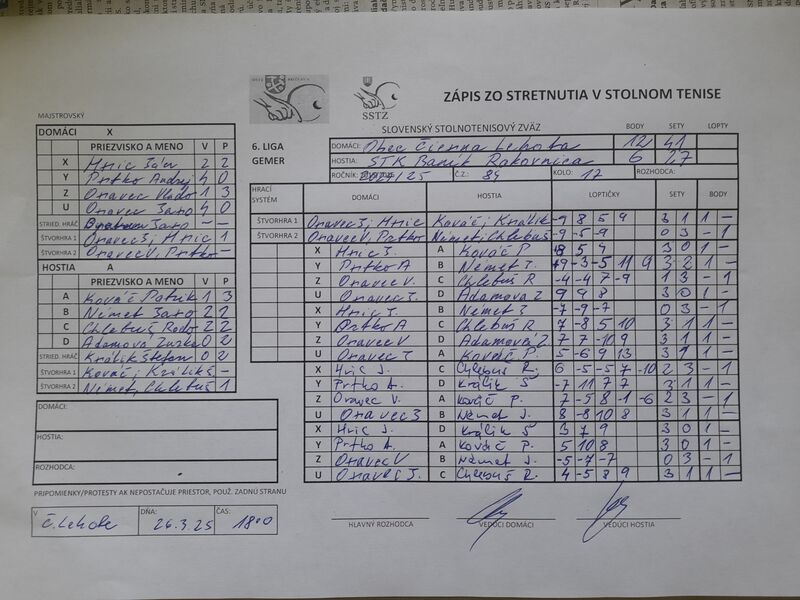 ZÁPIS ZO STRETNUTIA V STOLNOM TENISE
SSTZ
MAJSTROVSKÝ
SLOVENSKÝ STOLNOTENISOVÝ ZVÄZ BODY SETY LOPTY
DOMÁCI X
6. LIGA
GEMER
DOMÁCI: Obec Čierna Lehota 12 41
HOSTIA: STK Baník Rakovnica 6 27
ROČNÍK: 2024/25 Č.Z.: 84 KOLO: 17 ROZHODCA:
PRIEZVISKO A MENO V P
X Hric Ján 2 2
Y Prtko Andrej 4 0
Z Oravec Vlado 1 3
U Oravec Jaro 4 0
STRIED. HRÁČ Jaro – –
ŠTVORHRA 1 Oravec J, Hric 1
ŠTVORHRA 2 Oravec V, Prtko –
HOSTIA A
PRIEZVISKO A MENO V P
A Kováč Patrik 1 3
B Német Jaro 2 2
C Chlebuš Rado 2 2
D Adamova Zuzka 0 2
STRIED. HRÁČ Králik Štefan 0 2
ŠTVORHRA 1 Kováč, Králik –
ŠTVORHRA 2 Német, Chlebuš 1
HRACÍ SYSTÉM DOMÁCI HOSTIA LOPTIČKY SETY BODY
ŠTVORHRA 1 Oravec J, Hric Kováč, Králik -9 8 5 9 3 1 1 –
ŠTVORHRA 2 Oravec V, Prtko Német, Chlebuš -9 -5 -9 0 3 – 1
X Hric J. A Kováč P. 8 5 4 3 0 1 –
Y Prtko A B Német J. 9 -3 -5 11 9 3 2 1 –
Z Oravec V C Chlebuš R -4 -4 7 -9 1 3 – 1
U Oravec J. D Adamova Z 9 9 8 3 0 1 –
X Hric J. B Német J -7 -9 -7 0 3 – 1
Y Prtko A C Chlebuš R 7 -8 5 10 3 1 1 –
Z Oravec V D Adamová Z 7 7 -10 9 3 1 1 –
U Oravec J A Kováč P. 5 -6 9 13 3 1 1 –
X Hric J. C Chlebuš R. 6 -5 -5 7 -10 2 3 – 1
Y Prtko A. D Králik Š -7 11 7 7 3 1 1 –
Z Oravec V A Kováč P. 7 -5 8 -1 -6 2 3 – 1
U Oravec J B Német J. 8 -8 10 8 3 1 1 –
X Hric J. D Králik Š 3 7 9 3 0 1 –
Y Prtko A. A Kováč P. 5 10 8 3 0 1 –
Z Oravec V B Német J. -5 -7 -7 0 3 – 1
U Oravec J. C Chlebuš R. 4 -5 8 9 3 1 1 –
DOMÁCI:
HOSTIA:
ROZHODCA:
PRIPOMIENKY/PROTESTY AK NEPOSTAČUJE PRIESTOR, POUŽ. ZADNÚ STRANU
V Č. Lehote DŇA: 26.3.25 ČAS: 18:00
HLAVNÝ ROZHODCA VEDÚCI DOMÁCI VEDÚCI HOSTIA